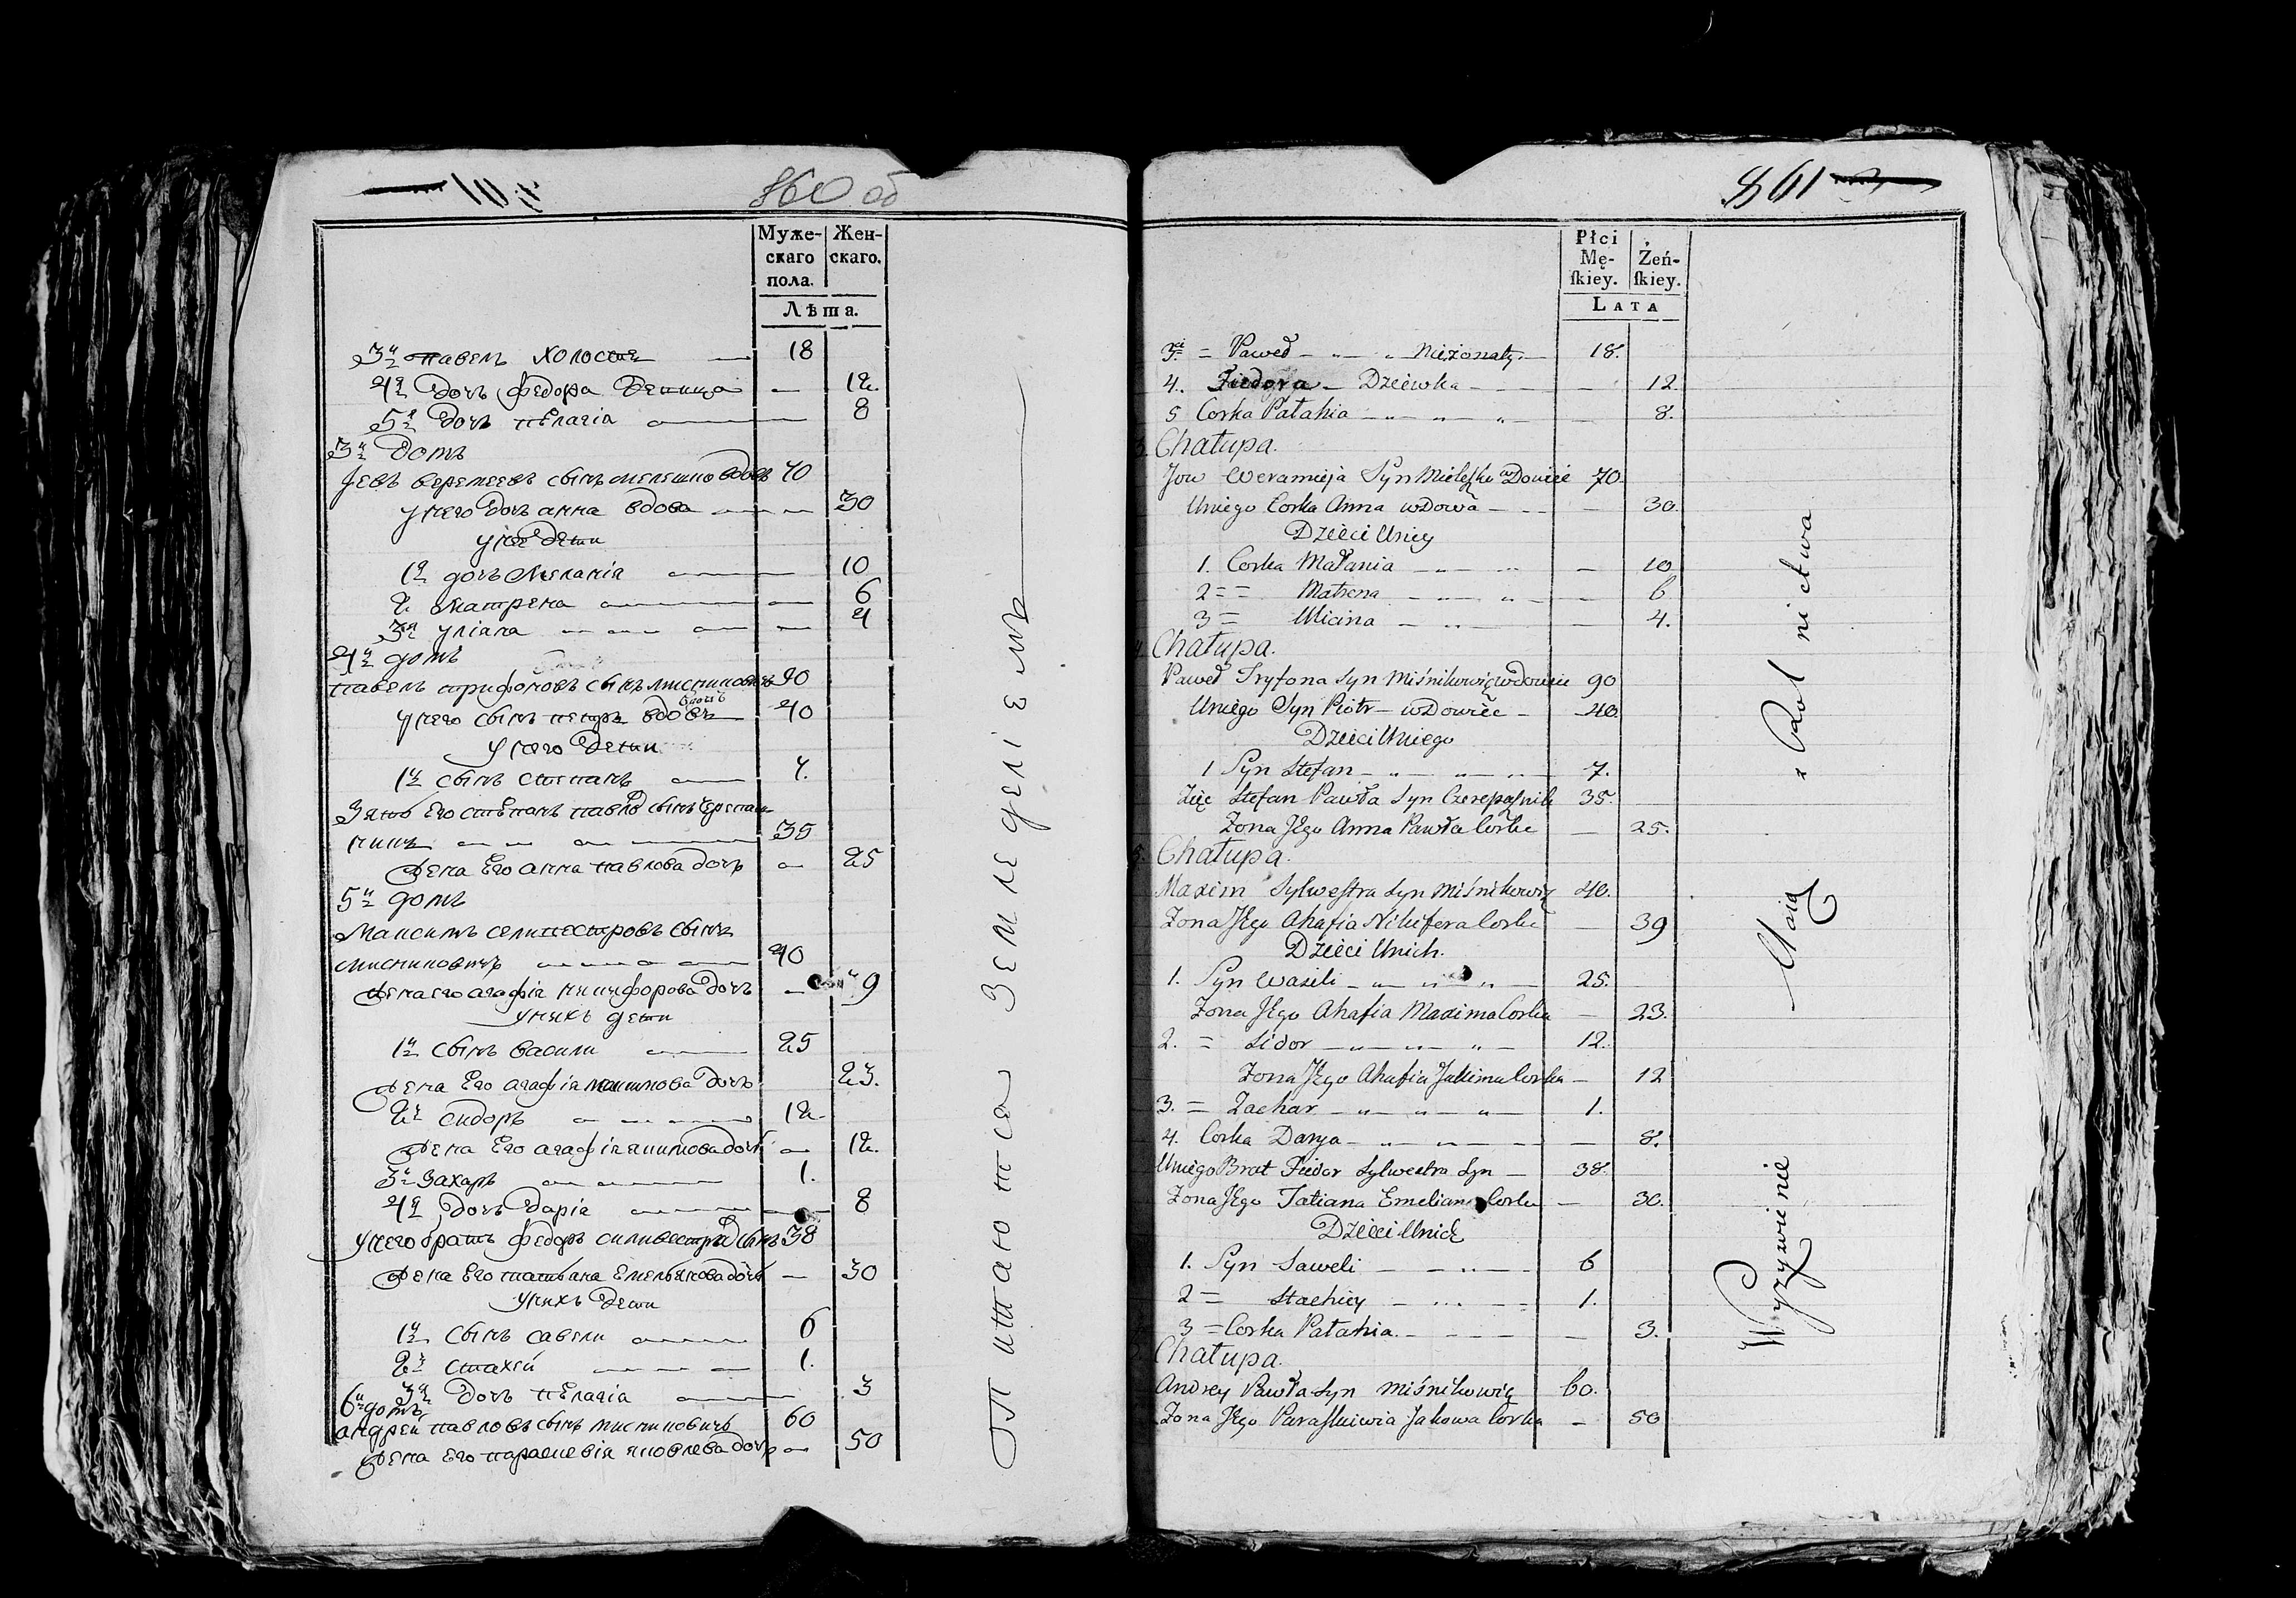 860 об
Муже-
скаго
пола.
Жен-
скаго.
Лѣта.
3й павелъ холостъ 18
4я дочь федора девица — 12
5я дочь пелагія — 8
3й домъ
Іевъ веремеевъ сынъ мелешко вдовъ 70
у него дочь анна вдова — 30
у нее дети
1я дочь меланія — 10
2 матрена — 6
3я уліана — 4
4й домъ
павелъ трифоновъ сынъ мисниковичъ 90
у него сынъ петръ вдовъ 40
у него дети
1й сынъ степанъ 7.
Зять его степанъ павловъ сынъ черепаш-
никъ 35
жена его анна павлова дочь — 25
5й домъ
Максимъ селивестровъ сынъ
мисниковичъ 40
жена его агафія никифорова дочь — 39
у нихъ дети
1й сынъ васили 25
жена его агафія максимова дочь 23.
2й сидоръ 12
жена его агафія якимова дочь — 12.
3й Захаръ 1.
4я дочь дарія 8
у него братъ федоръ силивестровъ сынъ 38
жена его татьана емельянова дочь — 30
у нихъ дети
1й сынъ савели 6
2й стахей 1.
3я дочь пелагія 3
6й домъ
андрей павловъ сынъ мисниковичъ 60
жена его параскевія яковлева дочь — 50
питаются земледеліемъ
861
Płci
Mę-
ſkiey.
Żeń-
ſkiey.
LATA
3. = Paweł — Nieżonaty — 18.
4. Fiedora — Dziewka — 12
5 Corka Pałahia — 8.
3. Chałupa.
Jow Weramieja Syn Mieleszko wdowiec 70.
Uniego Corka Anna wdowa — 30.
Dzieci Uniey
1. Corka Małania — 10
2 = = Matrena — 6
3 = Ulicina — 4.
4 Chałupa.
Paweł Tryfona Syn Miśnikowicz wdowiec 90
Uniego Syn Piotr — wdowiec — 40.
Dzieci Uniego
1 Syn Stefan — 7.
Zięć Stefan Pawła Syn Czerepasznik 35.
Zona Jego Anna Pawła Corka — 25.
5. Chałupa.
Maxim Sylwestra Syn Miśnikowicz 40.
Zona Jego Ahafia Nikifera Corka — 39
Dzieci Unich.
1. Syn Wasili — 25.
Zona Jego Ahafia Maxima Corka — 23.
2. = Sidor — 12.
Zona Jego Ahafia Jakima Corka — 12
3. = Zachar — 1.
4. Corka Darya — 8.
Uniego Brat Fiedor Sylwestra Syn — 38.
Zona Jego Tatiana Emeliana Corka — 30.
Dzieci Unich
1. Syn Saweli — 6
2 = Stachiey — 1.
3 = Corka Pałahia. — 3.
Chałupa.
Andrey Pawła Syn Miśnikowicz 60.
Zona Jego Paraskiwia Jakowa Corka — 50
Wyzywienie Maią z Rolnictwa